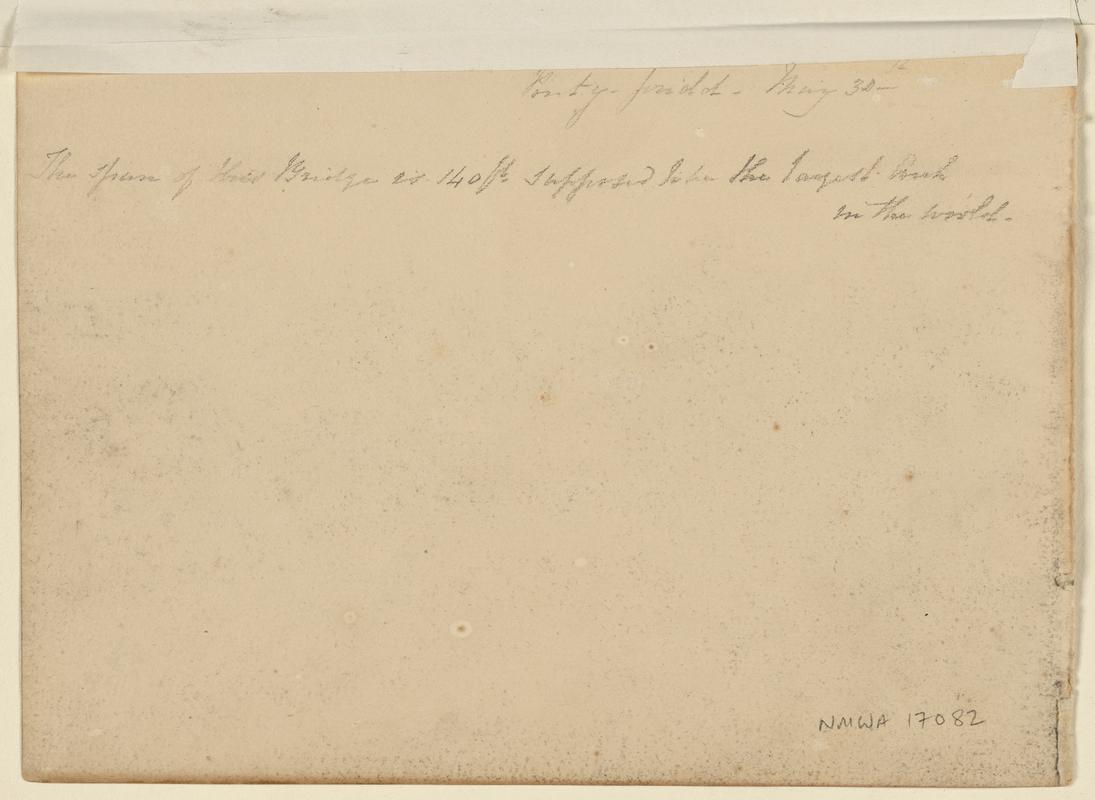 Ponty-pridd - May 30th
The span of this Bridge is 140 ft supposed to be the largest Arch
in the world.
NMWA 17082